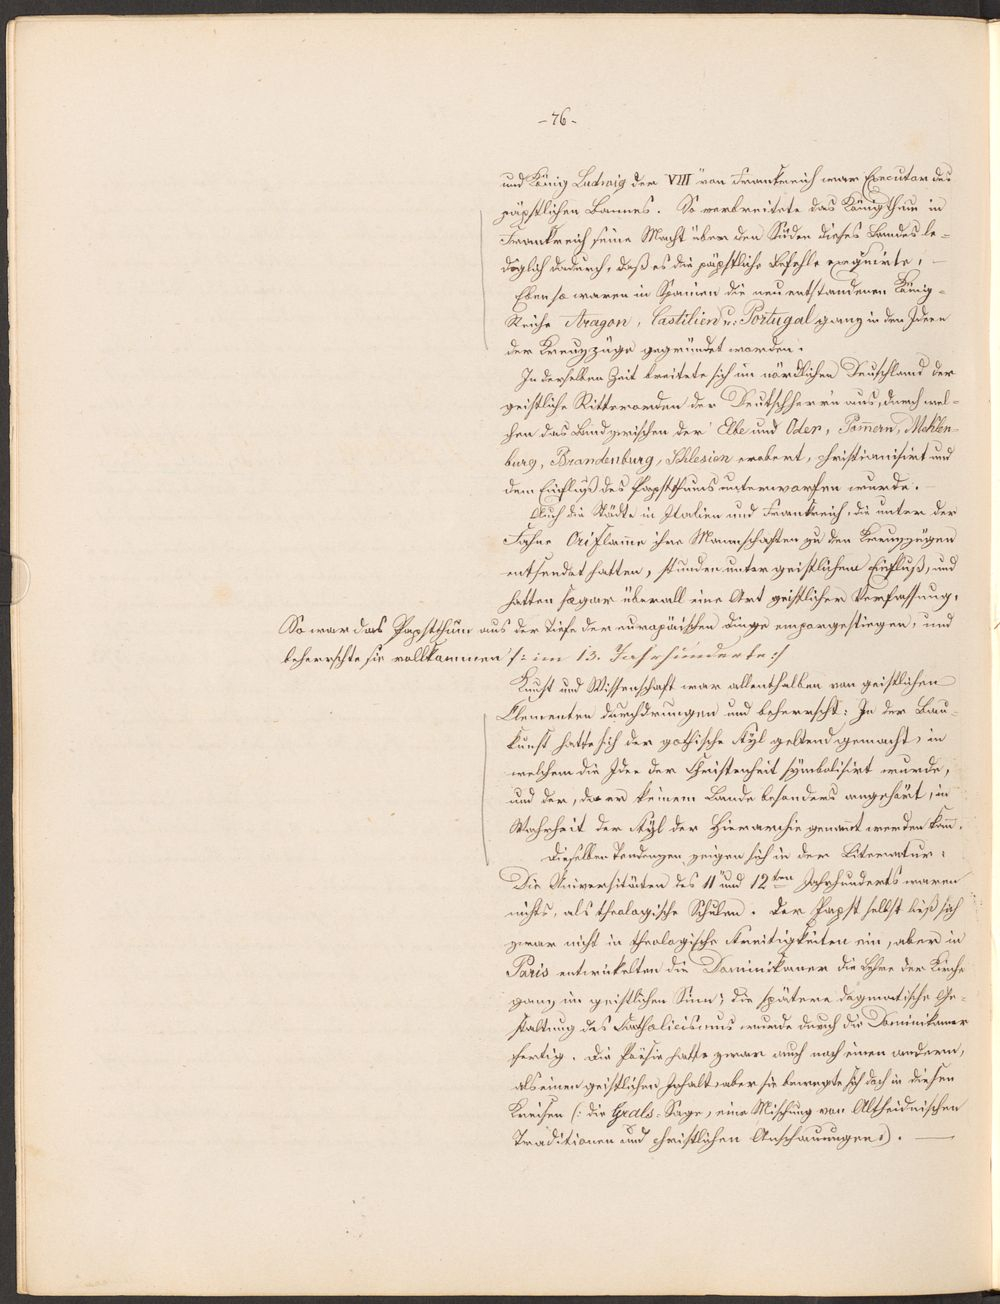 -76-
und König Ludwig der VIII von Frankreich war Executor des
päpstlichen Bannes. So verbreitete das Königthum in
Frankreich seine Macht über den Süden dieses Landes le-
diglich dadurch, daß es die päpstliche Befehle exequirte. –
Ebenso waren in Spanien die neu entstandenen König-
Reiche Aragon, Castilien u: Portugal ganz in den Ideen
der Kreuzzüge gegründet worden.
In derselben Zeit breitete sich im nördlichen Deutschland der
geistliche Ritterorden der Deutschherrn aus, durch wel-
chen das Land zwischen der Elbe und Oder, Pom̄ern, Meklen-
burg, Brandenburg, Schlesien erobert, christianisirt und
dem Einfluß des Papstthums unterworfen wurde. –
Auch die Städte in Italien und Frankreich, die unter der
Fahne Oriflam̄e ihre Mannschaften zu den Kreuzzügen
entsendet hatten, stunden unter geistlichem Einfluß, und
hatten sogar überall eine Art geistlicher Verfassung.
So war das Papstthum aus der Tiefe der europäischen Dinge emporgestiegen, und
beherrschte sie vollkommen /: im 13. Jahrhunderte :/
Kunst und Wissenschaft war allenthalben von geistlichen
Elementen durchdrungen und beherrscht: In der Bau-
kunst hatte sich der gothische Styl geltend gemacht, in
welchem die Idee der Christenheit symbolisirt wurde,
und der, da er keinem Lande besonders angehört, in
Wahrheit der Styl der Hierarchie genannt werden kan̄.
Dieselben Tendenzen zeigen sich in der Literatur:
Die Universitäten des 11 und 12ten Jahrhunderts waren
nichts, als theologische Schulen. Der Papst selbst ließ sich
zwar nicht in theologische Streitigkeiten ein, aber in
Paris entwickelten die Dominikaner die Lehre der Kirche
ganz im geistlichen Sinn; die spätere dogmatische Ge-
staltung des Katholicismus wurde durch die Dominikaner
fertig. Die Poësie hatte zwar auch noch einen andern,
als einen geistlichen Inhalt, aber sie bewegte sich doch in diesen
Kreisen (: die Grals-Sage, eine Mischung von Altheidnischen
Traditionen und christlichen Anschauungen :). —